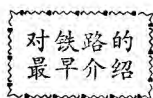 对铁路的
最早介绍